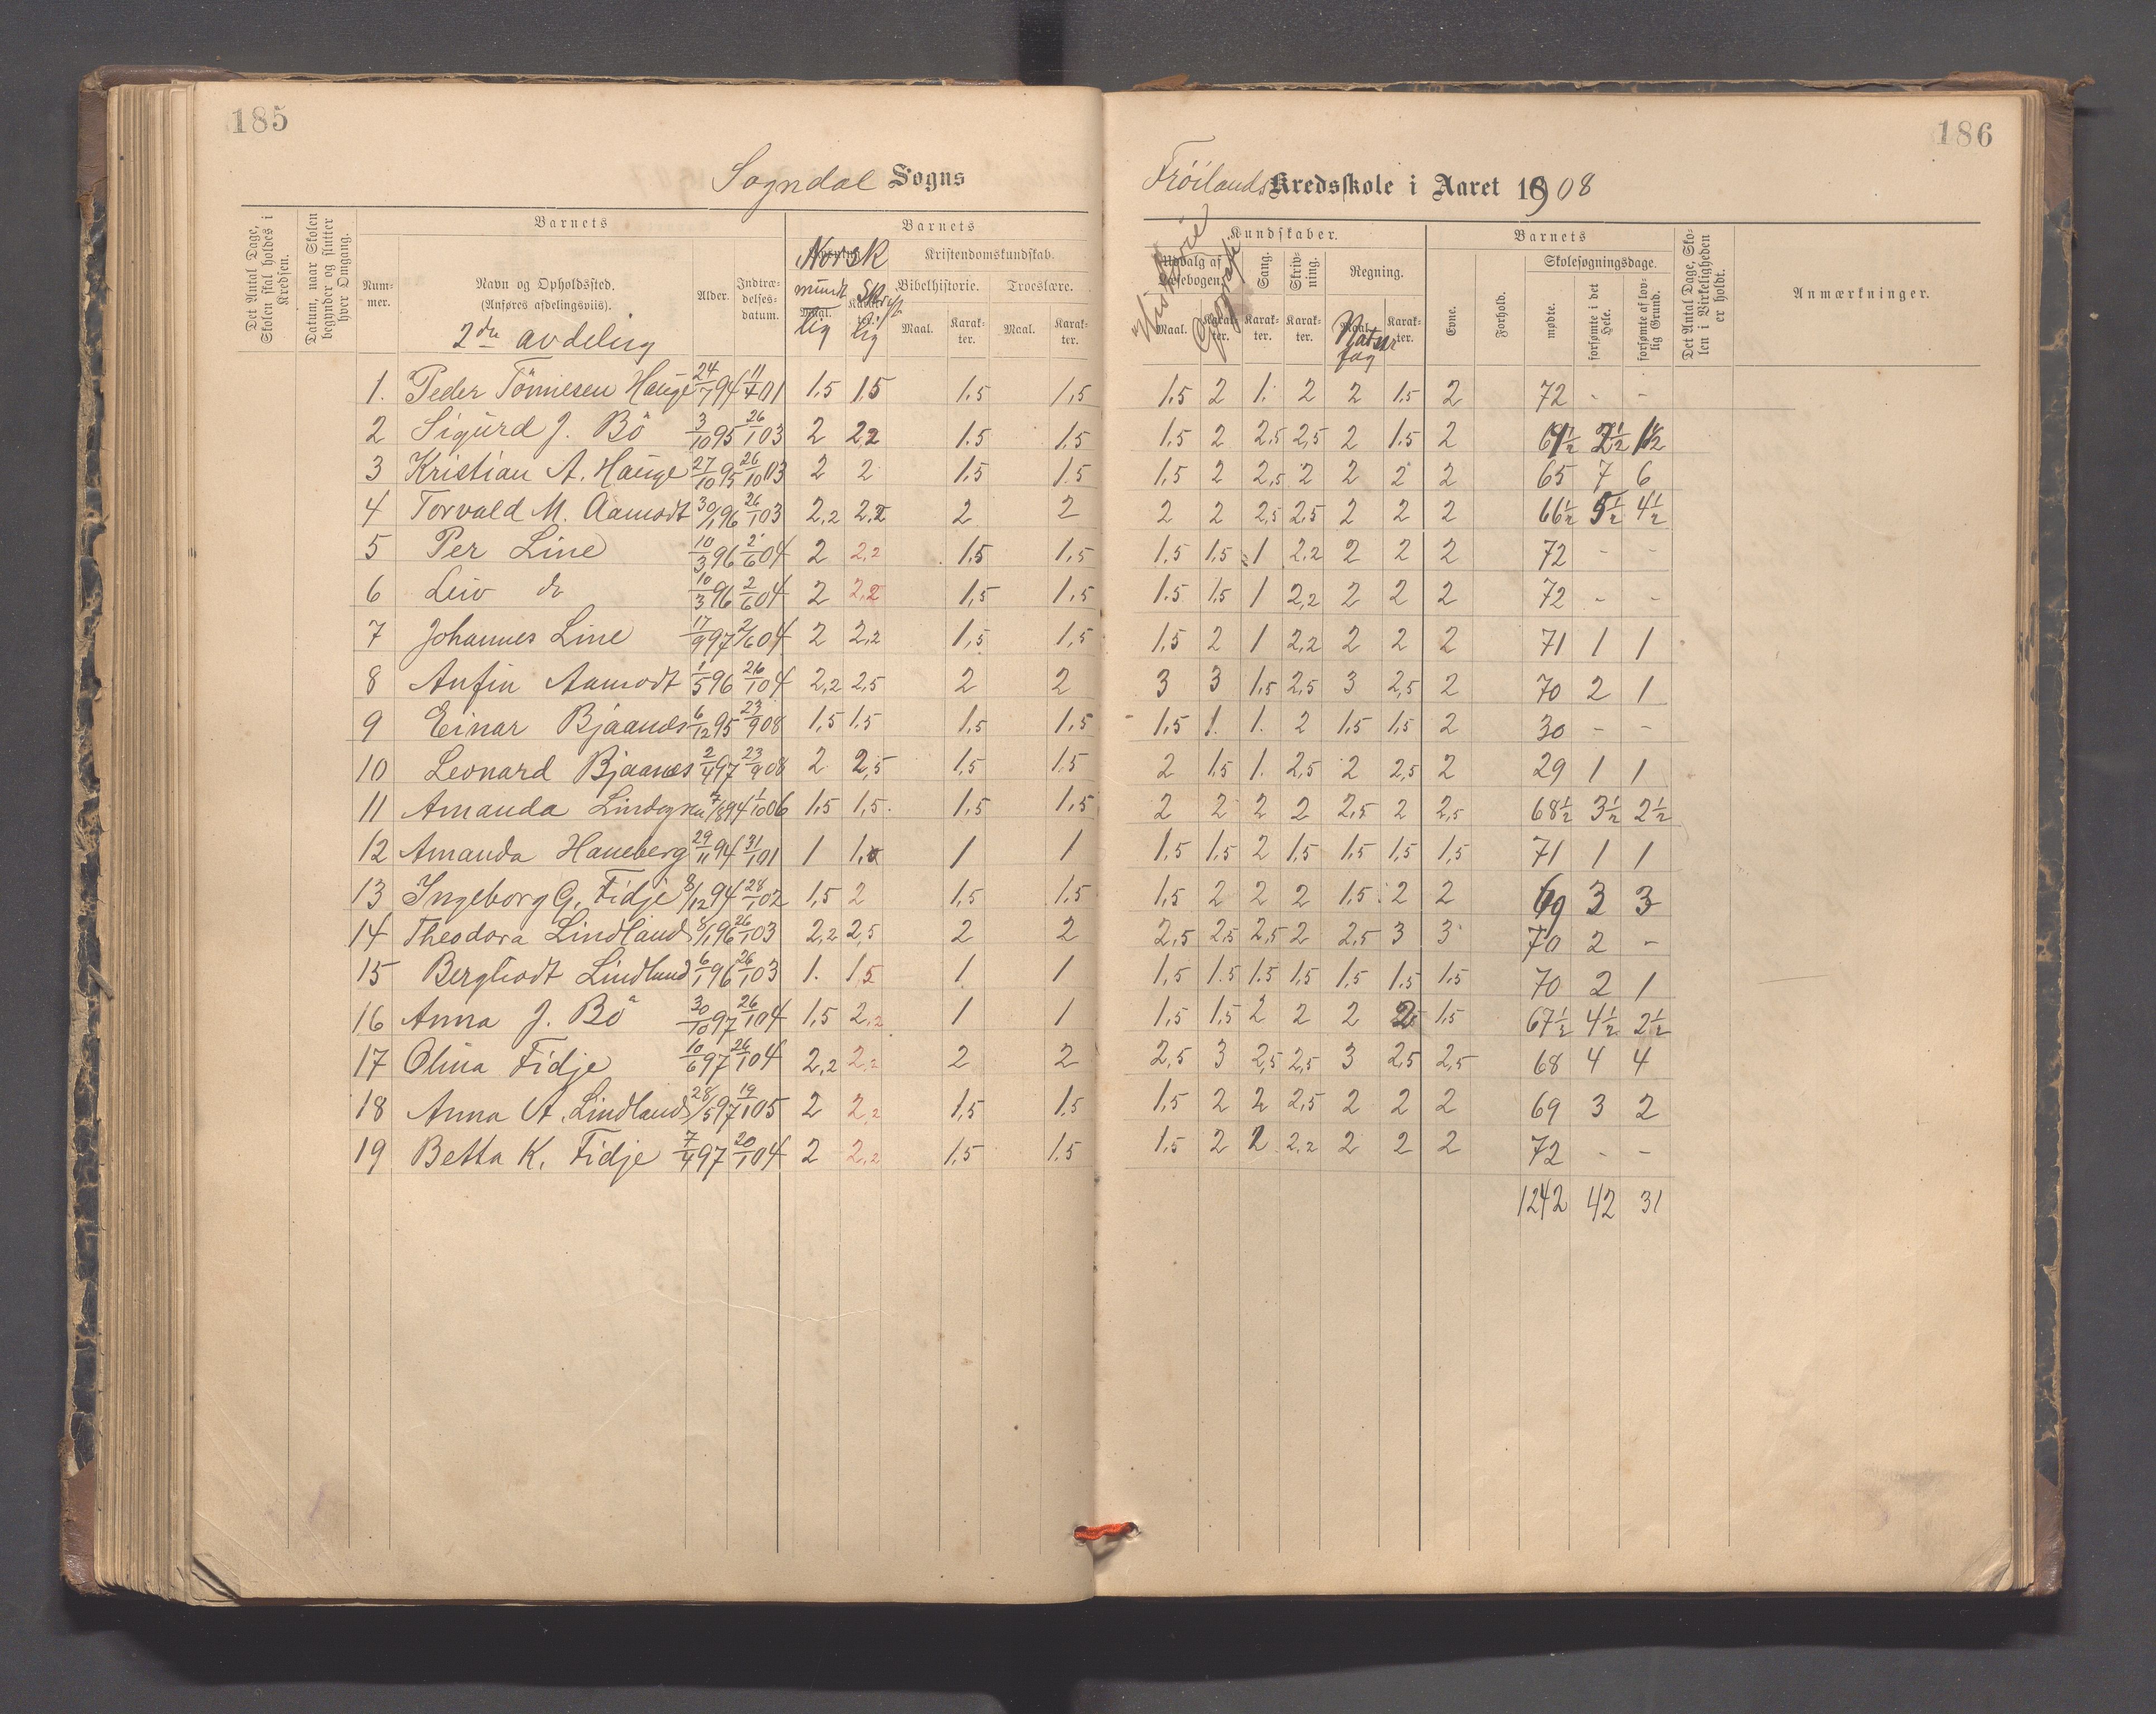 185
186
Sogndal Sogns
Fröilands Kredsskole i Aaret 1908
Det Antal Dage, Skolen skal holdes i Kredsen.
Datum, naar Skolen begynder og slutter hver Omgang.
Barnets
Nummer.
Navn og Opholdssted.
(Anføres afdelingsviis).
2den avdeling
Alder.
Indtrædelsesdatum.
Barnets
Norsk
mundtlig
Skriftlig
Maal.
Kristendomskundskab.
Bibelhistorie.
Troeslære.
Maal.
Karakter.
Maal.
Karakter.
Kundskaber.
Historie
Geografi
Udvalg af Læsebogen.
Maal.
Karakter.
Sang.
Karakter.
Skrivning.
Karakter.
Regning.
Maal.
Karakter.
Naturfag
Barnets
Evne.
Forhold.
Skolesøgningsdage.
mødte.
forsømte i det Hele.
forsømte af lovlig Grund.
Det Antal Dage, Skolen i Virkeligheden er holdt.
Anmærkninger.
1. Peder Tönnesen Hauge 24/7 94 11/4 01 1,5 1,5 1,5 1,5 1,5 2 1. 2 2 1,5 2 72 - -
2 Sigurd J. Bö 3/10 95 26/1 03 2 2,2 1.5 1,5 1.5 2 2,5 2,5 2 1.5 2 69 1/2 2 1/2 1 1/2
3 Kristian A. Hauge 27/10 95 26/10 03 2 2 1,5 1.5 1,5 2 2,5 2 2 2 2 65 7 6
4 Torvald M. Aamodt 30/1 96 26/1 03 2,2 2,2 2 2 2 2 2,5 2,5 2 2 2 66 1/2 5 1/2 4 1/2
5 Per Line 10/3 96 2/6 04 2 2,2 1,5 1,5 1,5 1,5 1 2,2 2 2 2 72 - -
6 Leiv do 10/3 96 2/6 04 2 2,2 1,5 1,5 1.5 1,5 1 2,2 2 2 2 72 - -
7 Johannes Line 17/9 97 2/6 04 2 2,2 1,5 1,5 1,5 2 1 2,2 2 2 2 71 1 1
8 Anfin Aamodt 1/5 96 26/1 04 2,2 2,5 2 2 3 3 1,5 2,5 3 2,5 2 70 2 1
9 Einar Bjaanes 6/12 95 23/9 08 1,5 1.5 1,5 1,5 1,5 1. 1. 2 1,5 1,5 2 30 - -
10 Leonard Bjaanes 2/4 97 23/9 08 2 2,5 1,5 1,5 2 1,5 1. 2,5 2 2,5 2 29 1 1
11 Amanda 7/8 94 1/10 06 1,5 1,5. 1,5 1,5 2 2 2 2 2,5 2 2,5 68 1/2 3 1/2 2 1/2
12 Amanda Haneberg 29/11 94 31/1 01 1 1,0 1 1 1,5 1,5 2 1,5 1,5 1,5 1,5 71 1 1
13 Ingeborg G. Fidje 8/12 94 28/1 02 1,5 2 1,5 1,5 1,5 2 2 2 1,5 2 2 69 3 3
14 Theodora Lindland 8/1 96 26/1 03 2,2 2,5 2 2 2,5 2,5 2,5 2 2,5 3 3 70 2 -
15 Berghodt Lindland 6/1 96 26/1 03 1. 1,5 1 1 1,5 1.5 1.5 1,5 1,5 1,5 1,5 70 2 1
16 Anna J. Bö 30/10 97 26/1 04 1,5 2,2 1 1 1,5 1,5 2 2 2 2 1,5 67 1/2 4 1/2 2 1/2
17 Olina Fidje 10/6 97 26/1 04 2,2 2,2 2 2 2,5 3 2,5 2,5 3 2,5 2,5 68 4 4
18 Anna A. Lindland 28/5 97 19/1 05 2 2,2 1,5 1,5 1,5 2 2 2,5 2 2 2 69 3 2
19 Betta K. Fidje 7/4 97 20/1 04 2 2,2 1,5 1,5 1,5 2 2 2,2 2 2 2 72 - -
1242 42 31